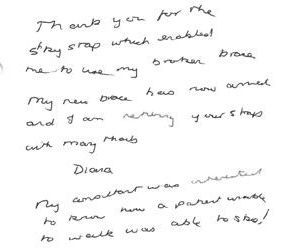 Thank you for the
stay strap which enabled
me to use my broken brace
My new brace has now arrived
and I am returning your straps
with many thanks
Diana
My consultant was interested
to know how a patient unable
to walk was able to ski!